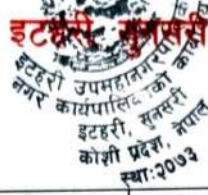 इटहरी, सुनसरी
इटहरी उपमहानगरपा
नगर कार्यपालिकाको कार्या
इटहरी, सुनसरी
कोशी प्रदेश, नेपाल
स्था:२०७३